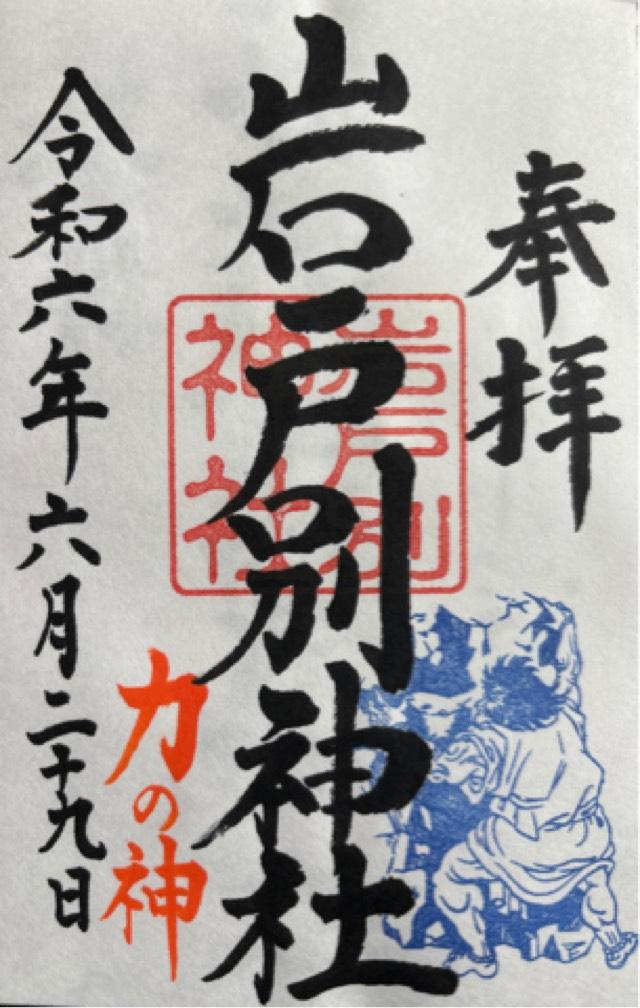 奉拝
岩戸別神社
岩戸別
神社
力の神
令和六年六月二十九日